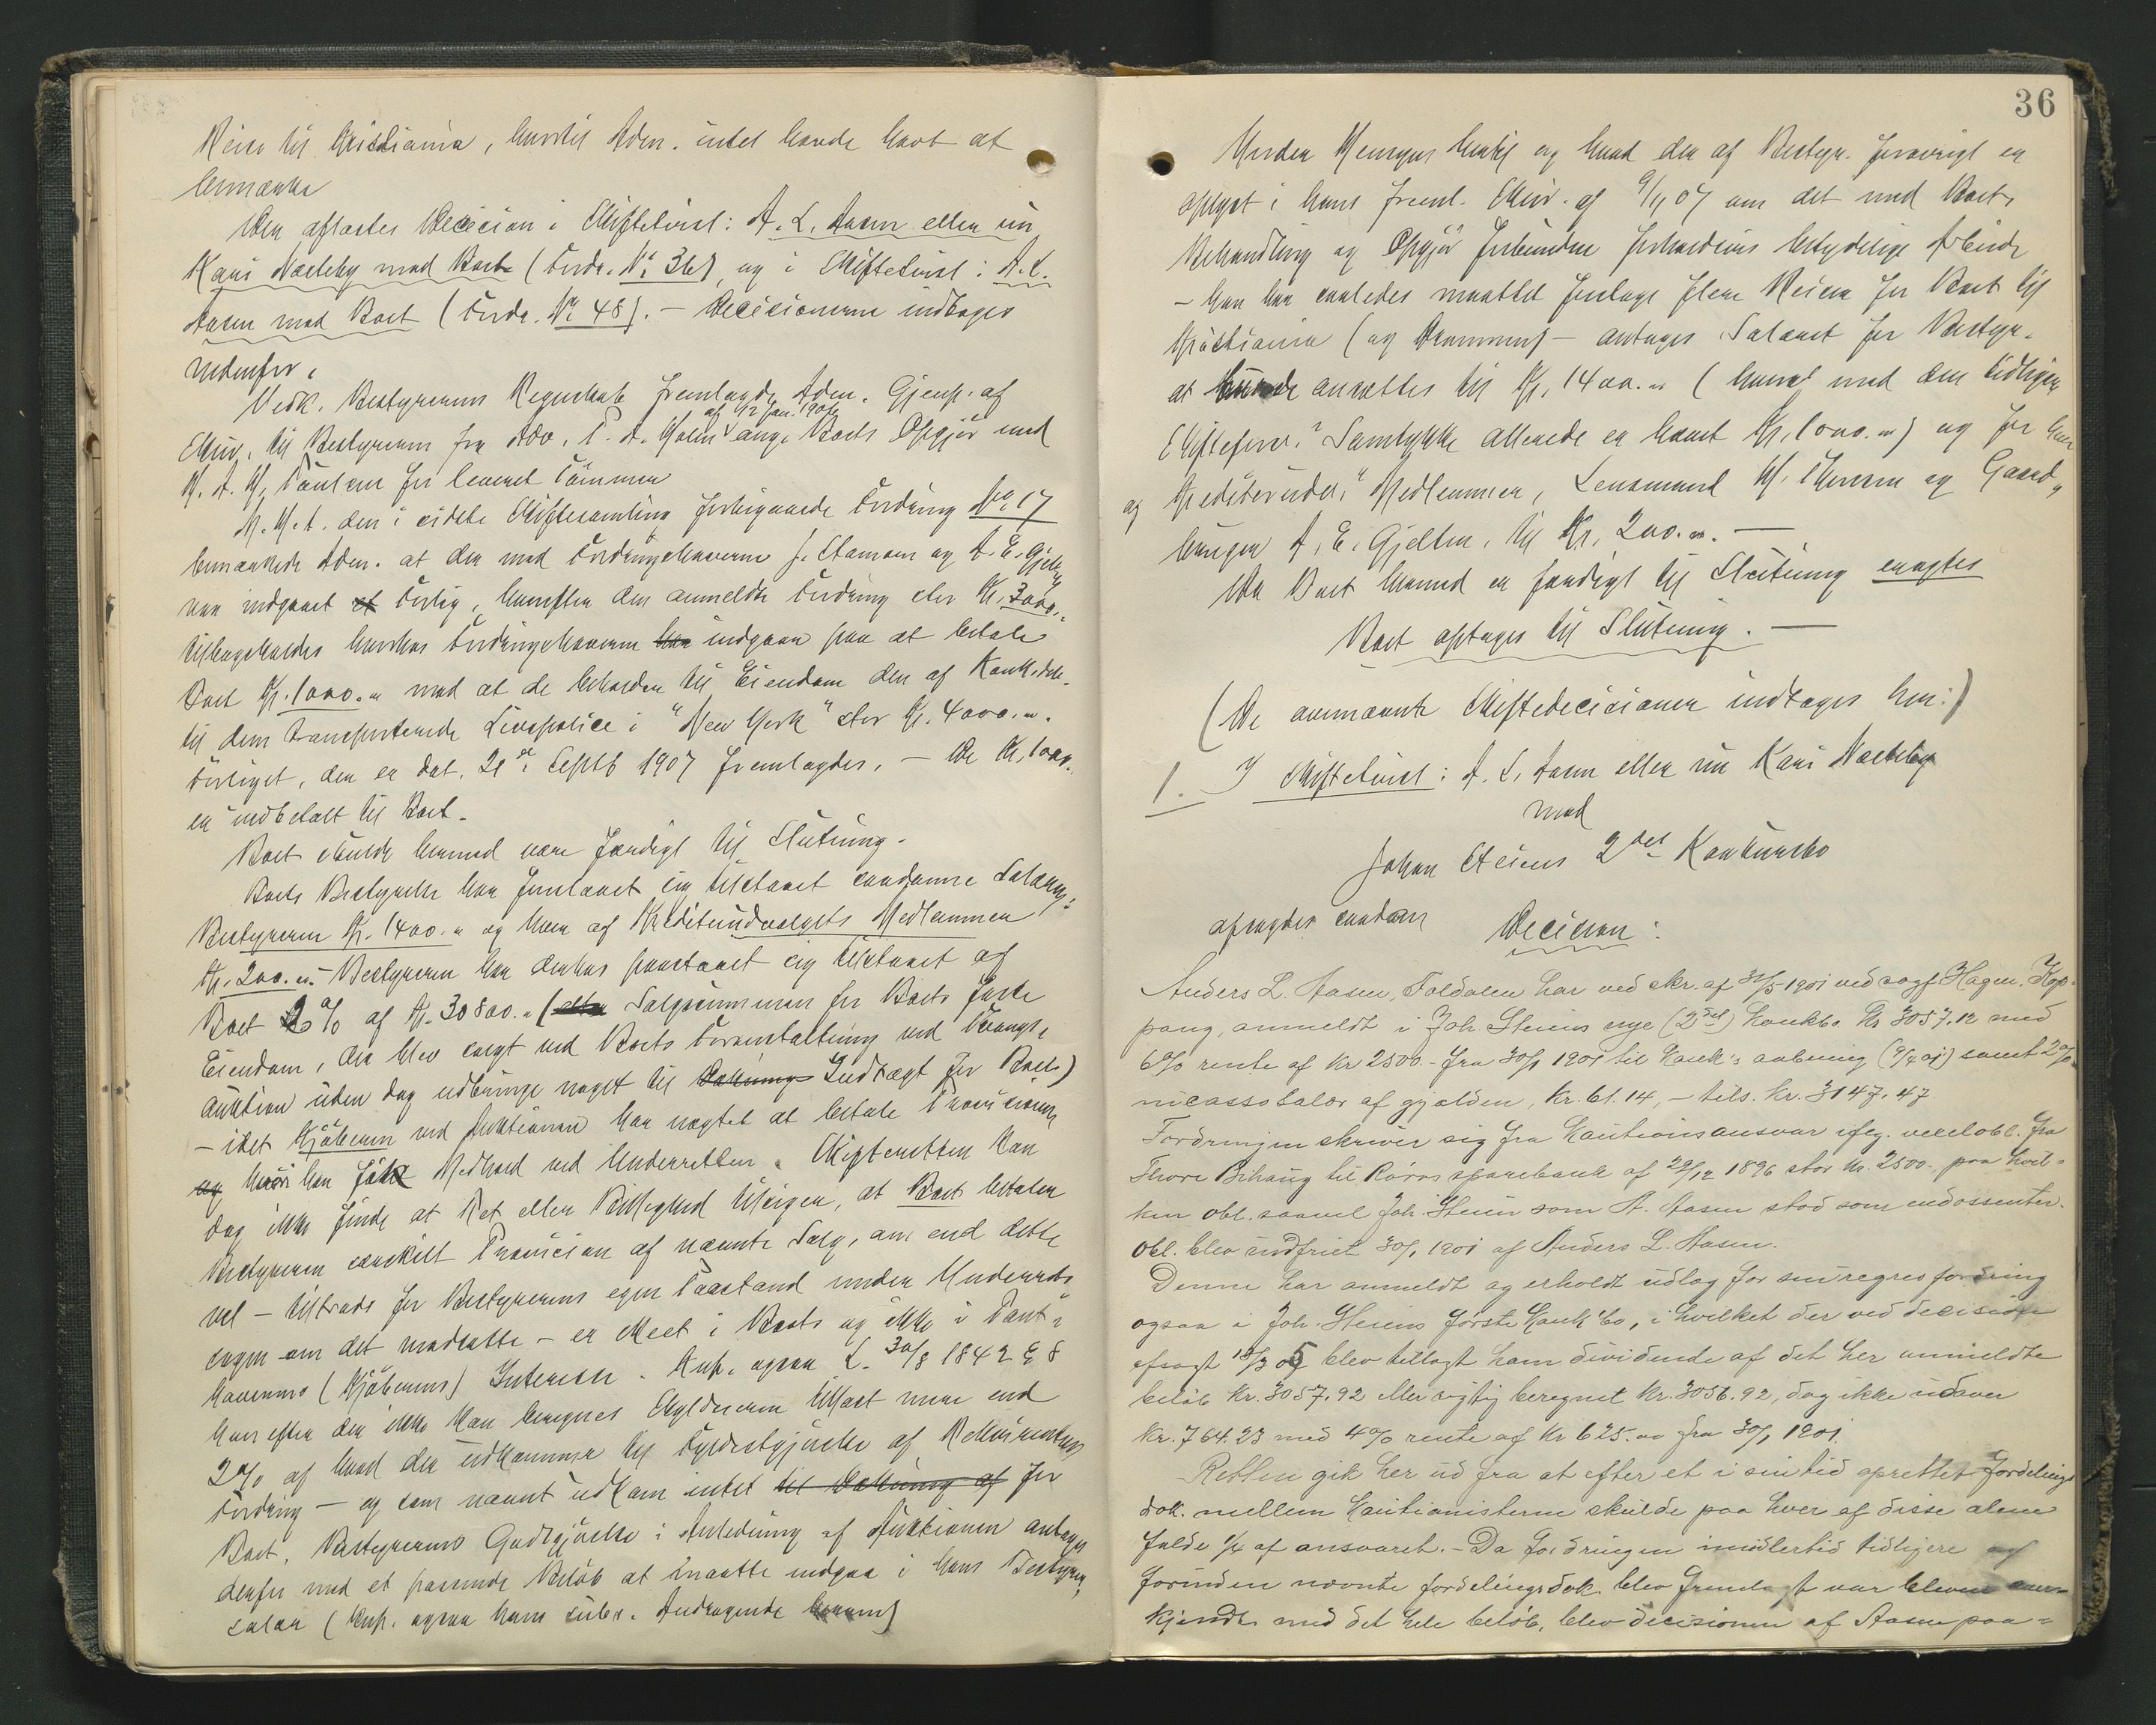 Reise til Kristiania, hvortil Adm. intet havde havt at
bemærke
Der afsattes Decision i Skiftetvist: A. L. Aasen eller nu
Kari Næteby mod Boet (Fordr. No 36), og i Skiftetvist: A. L.
Aasen mod Boet (Fordr. No 48). — Decisionerne indtages
nedenfor.
Vedk. Bestyrerens Regnskab fremlagde Adm. Gjenp. af
Skriv. til Bestyreren fra Adv. P. A. Holm af 12 Jan. 190 ang. Boets Opgjør med
M. A. H. Paulsen for leveret Tømmer
M. H. t. den i sidste Skiftesamling forbigaaede Fordring No 17
bemærkede Adm. at der med Fordringshaverne J. Stamoen og A. E. Gjelten
var indgaaet et Forlig, hvorefter den anmeldte Fordring stor Kr. 3000,
tilbageholdes hvorhos Fordringshaverne har indgaaet paa at betale
Boet Kr. 1000.- mod at de beholder til Eiendom den af Konk.deb.
til dem transporterede Livspolice i "New York" stor Kr. 4000.-.
Forliget, der er dat. 21de Septb 1907 fremlagdes. — De Kr. 1000.
er indbetalt til Boet.
Boet skulde hermed være færdigt til Slutning.
Boets Bestyrelse har forlangt sig tilstaaet saadanne Salærer:
Bestyreren Kr. 1400.- og hver af Kreditudvalgets Medlemmer
Kr. 200.-. Bestyreren har derhos paastaaet sig tilstaaet af
Boet 2% af Kr. 30800.- ( Salgssummen for Boets faste
Eiendom, der blev solgt ved Boets Foranstaltning ved Tvangs-
auktion uden dog udbringe noget til Dækning Indtægt for Boet)
— idet Kjøberen ved Auktionen har nægtet at betale Provisionen
og hvori han fik Medhold ved Underretten. Skifteretten kan
dog ikke finde at Ret eller Billighed tilsiger, at Boet betaler
Bestyreren særskilt Provision af nævnte Salg, om end dette
vel — tiltrods for Bestyrerens egen Paastand under Underrets-
sagen om det modsatte — er skeet i Boets og ikke i Pant-
haverens (Kjøberens) Interesse. Knf. ogsaa L. 30/8 1842 § 8
hvorefter der ikke kan beregnes Skyldneren tillast mere end
2% af hvad der udkommer til Fyldestgjørelse af Rekvirentens
Fordring — og som nævnt udkom intet til Dækning af for
Boet. Bestyrerens Godtgjørelse i Anledning af Auktionen antages
derfor med et passende Beløb at maatte indgaa i hans Bestyrer-
salær (Knf. ogsaa hans subs. Andragende herom)
36
Under Hensyn hertil og hvad der af Bestyr. forøvrigt er
oplyst i hans freml. Skriv. af 9/1 07 om det med Boets
Behandling og Opgjør forbundne forholdsvis betydelige Arbeide
— han har saaledes maattet foretage flere Reiser for Boet til
Kristiania (og Drammen) — antages Salæret for Bestyr.
at burde ansættes til Kr. 1400.- (hvoraf med den tidligere
Skifteforv.s Samtykke allerede er hævet Kr. 1000.-) og for hver
af Kreditorudv.s Medlemmer, Lensmand M. Thoresen og Gaard-
bruger A. E. Gjelten, til Kr. 200.-. —
Da Boet hermed er færdigt til Slutning eragtes
Boet optages til Slutning. —
(De ovennævnte Skiftedecisioner indtages her:)
1. I Skiftetvist: A. L. Aasen eller nu Kari Næteby
mod
Johan Steiens 2det Konkursbo
afsagdes saadan Decision:
Anders L. Aasen, Foldalen har ved skr. af 31/5 1901 ved sagf Hagen, Kop-
pang, anmeldt i Joh Steiens nye (2det) konkbo Kr 3057.12 med
6% rente af kr 2500.- fra 30/1 1901 til konk's aabning (9/4 01) samt 2%
incassosalær af gjælden, kr. 61.14, - tils. kr. 3147.47
Fordringen skriver sig fra kautionsansvar iføg. vexelobl. fra
Thore Bihaug til Røros sparebank af 29/12 1896 stor kr. 2500.- paa hvil-
ken obl. saavel Joh. Steien som A. Aasen stod som endossenter.
Obl. blev indfriet 30/1 1901 af Anders L. Aasen.
Denne har anmeldt og erholdt udlæg for sin regresfordring
ogsaa i Joh. Steiens første konk'bo, i hvilket der ved decision
afsagt 18/3 05 blev tillagt ham dividende af det her anmeldte
beløb kr. 3057.92 eller rigtig beregnet kr. 3056.92, dog ikke udover
kr. 764.23 med 4% rente af kr 625.00 fra 30/1 1901.
Retten gik her ud fra at efter et i sin tid oprettet fordelings-
dok. mellem kautionisterne skulde paa hver af disse alene
falde 1/4 af ansvaret. - Da fordringen imidlertid tidligere og
forinden nævnte fordelingsdok. blev fremlagt var bleven aner-
kjendt med det hele beløb, blev decisionen af Aasen paa-